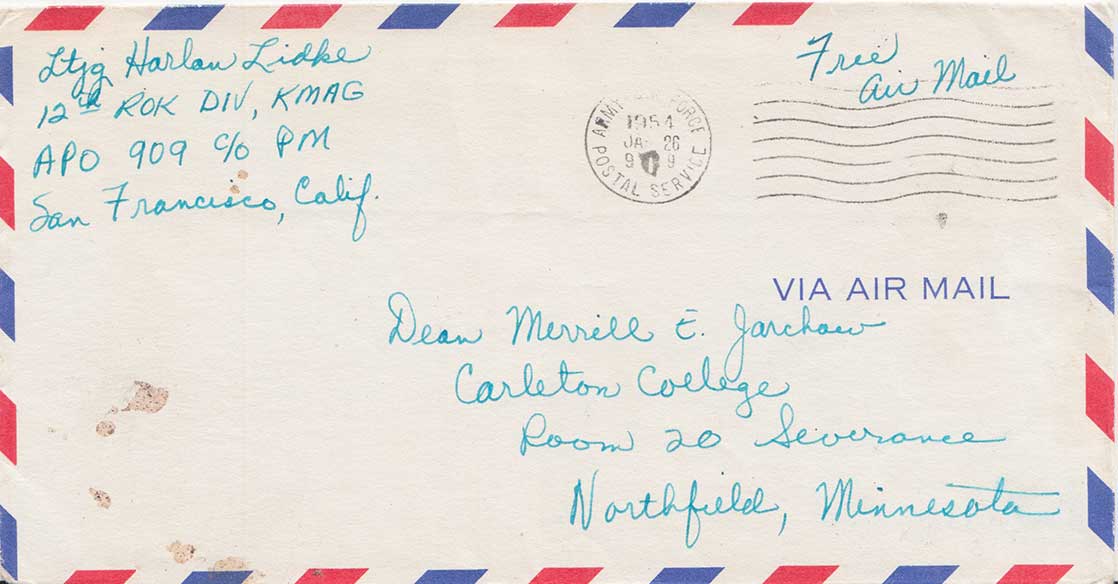 Ltjg Harlan Lidke
12th ROK DIV, KMAG
APO 909 c/o PM
San Francisco, Calif.
Free
Air Mail
ARMY FORCE
1954
JA 26
9 9
POSTAL SERVICE
VIA AIR MAIL
Dean Merrill E. Jarchow
Carleton College
Room 20 Severance
Northfield, Minnesota